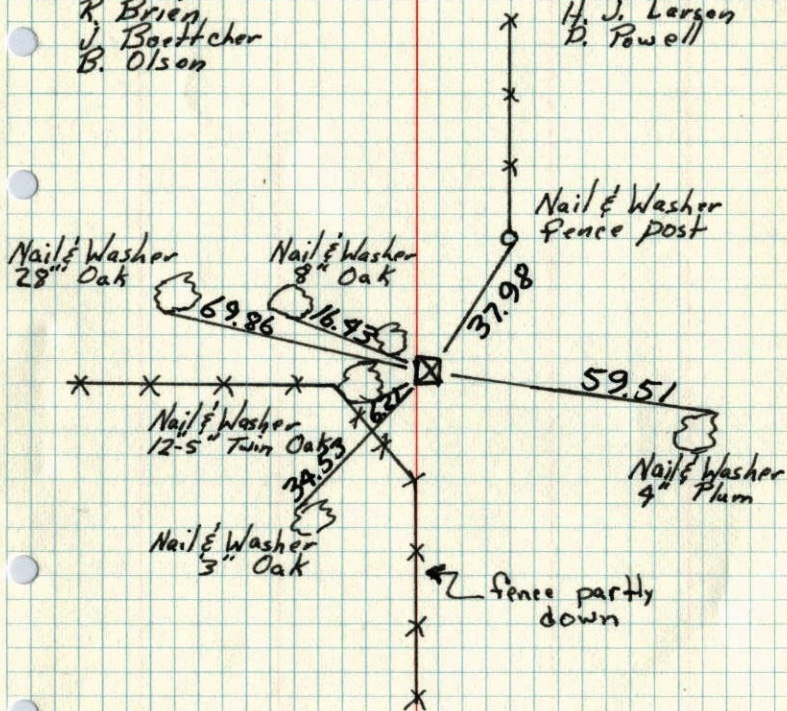 R. Brien
J. Boettcher
B. Olson
H. J. Larson
D. Powell
Nail & Washer
fence post
Nail & Washer
28" Oak
Nail & Washer
8" Oak
69.86
16.43
37.98
59.51
6.22
Nail & Washer
12-5" Twin Oaks
34.53
Nail & Washer
4" Plum
Nail & Washer
3" Oak
fence partly
down